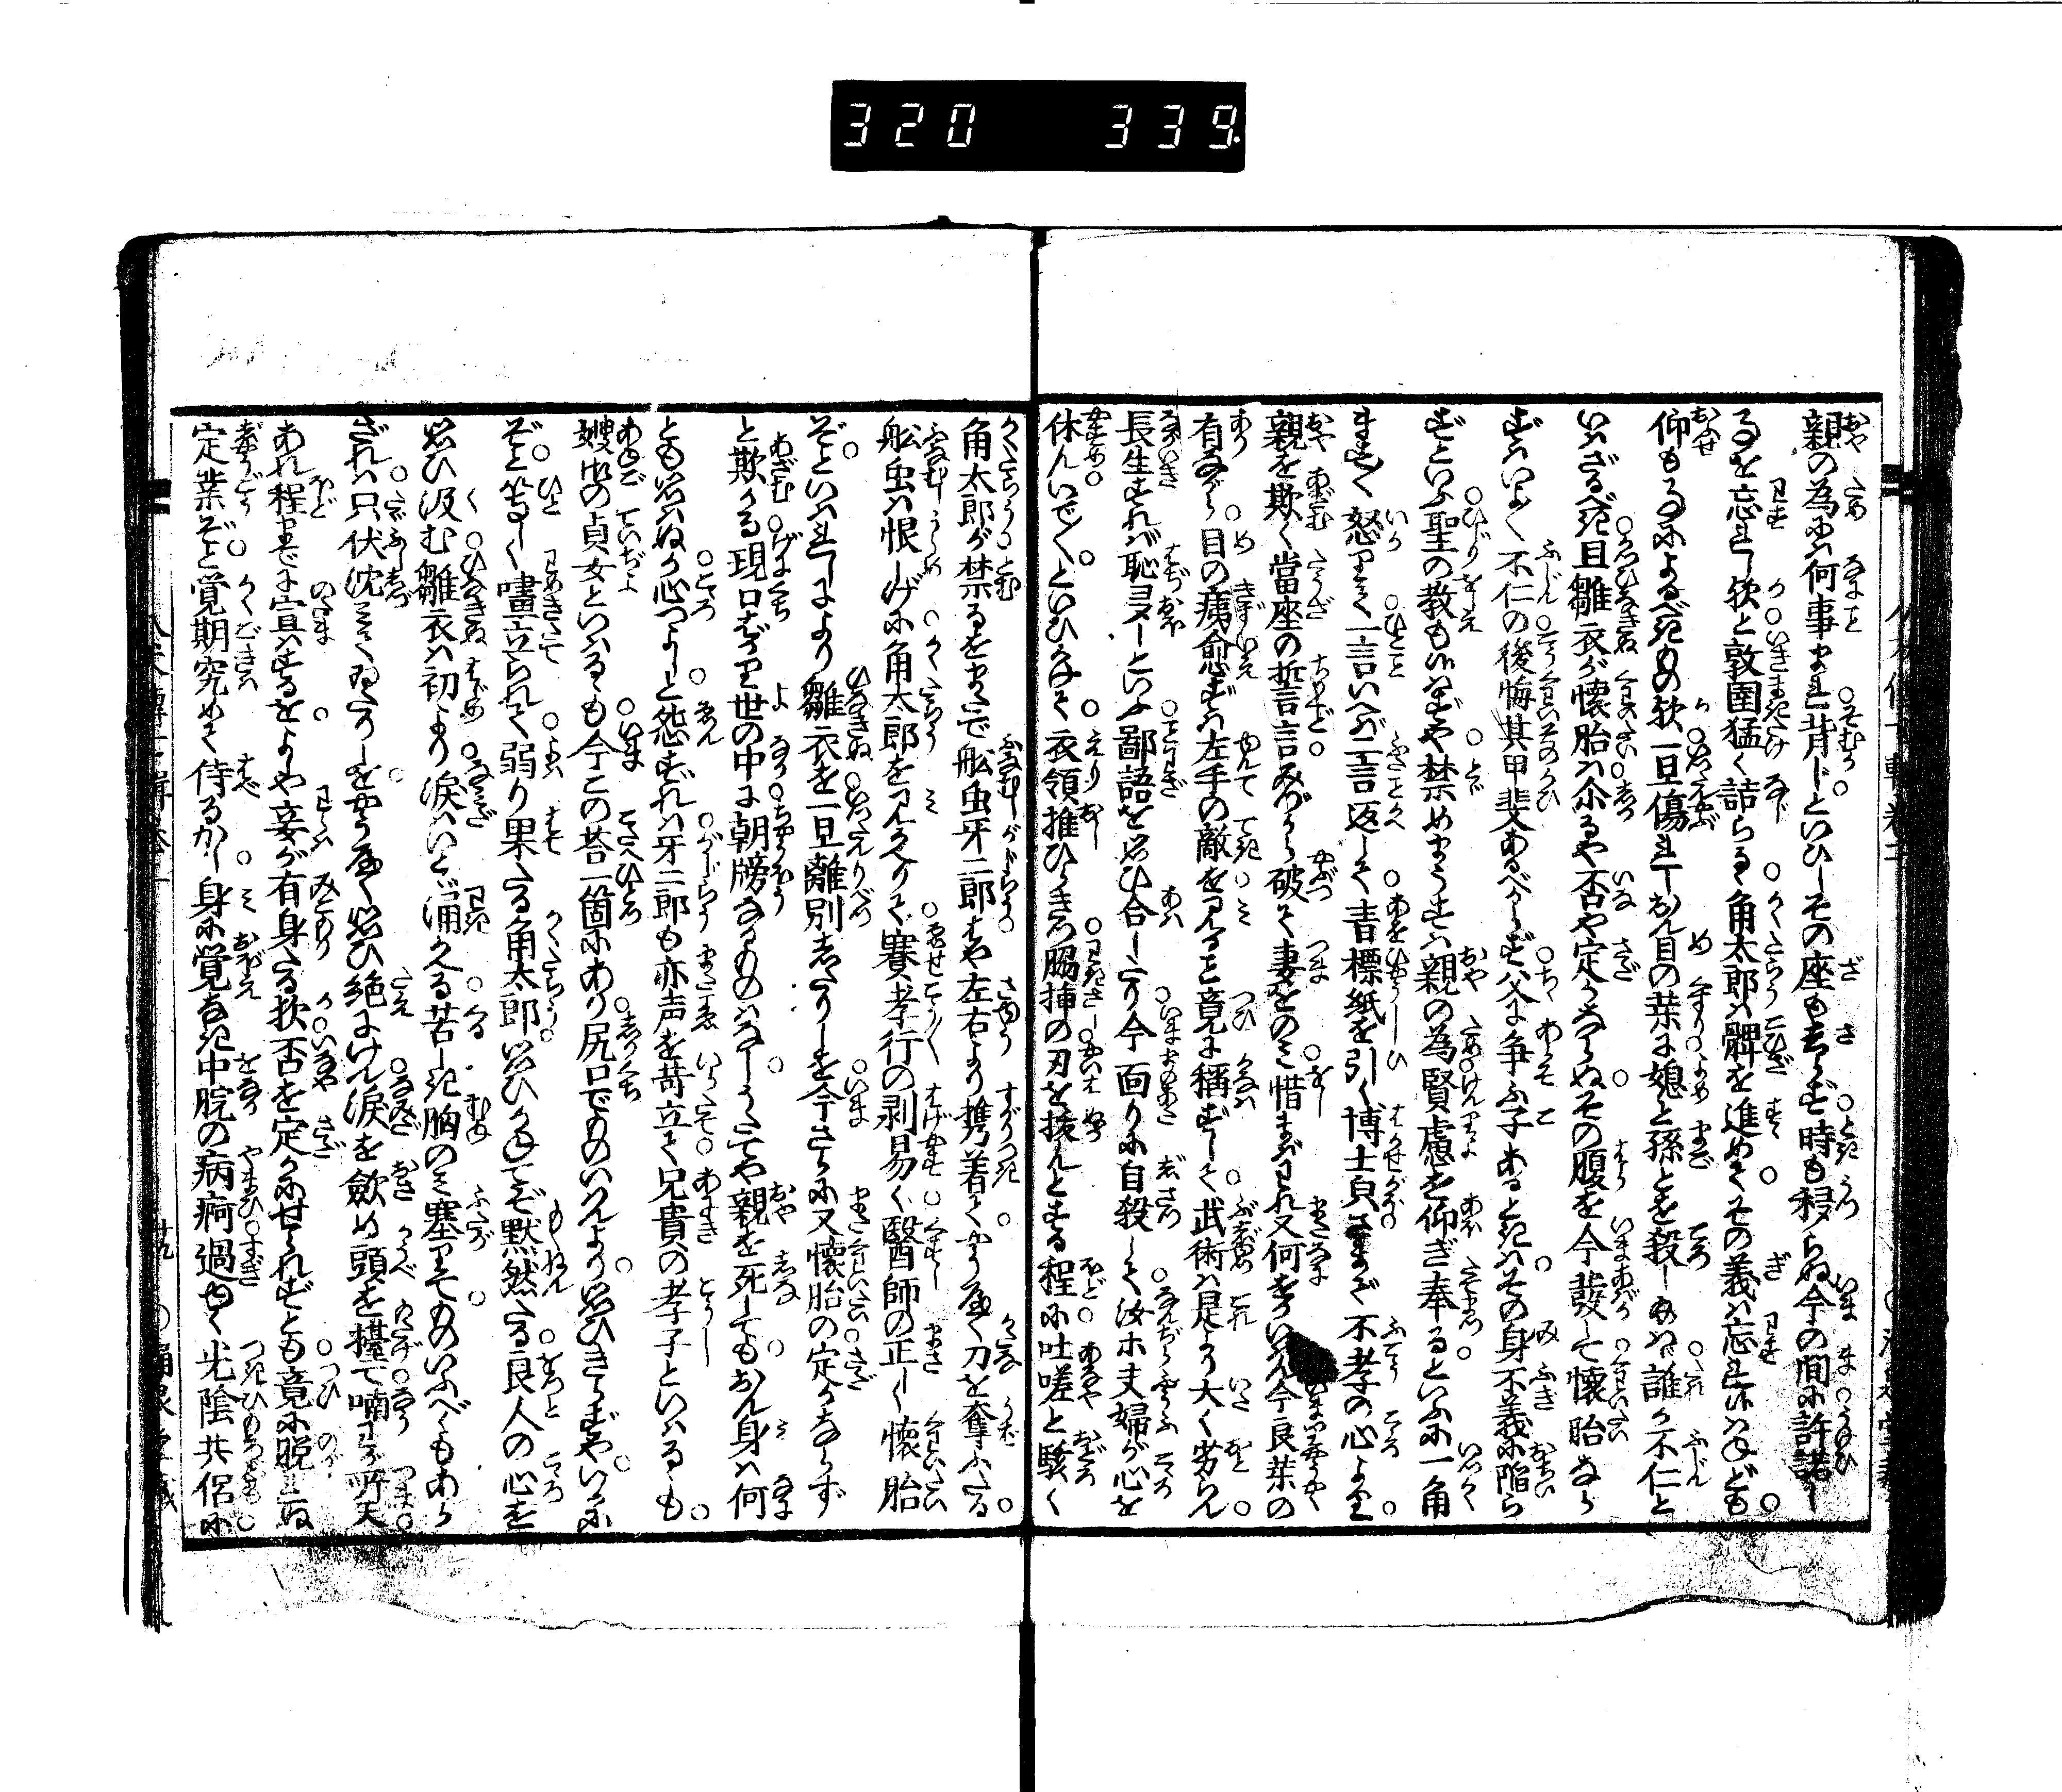 320 339
親の為には何事まれ背じといひしその座も去らず時も移らぬ今の間に許諾し
るを忘れし欤と敦圉猛く詰らるゝ角太郎は髀を進めてその義は忘れ候はねども
仰もるによるべきもの欤一旦傷れしおん目の薬に娘と孫とを殺しあはゞ誰か不仁と
いはざるべき且雛衣が懐胎は尓るや否や定かならぬその腹を今發て懐胎なら
ずはいよ〳〵不仁の後悔其甲斐あるべからず父に争ふ子あるときはその身不義に陥ら
ずといふ聖の教も候はずや禁めまうすは親の為賢慮を仰ぎ奉るといふに一角
ます〳〵怒りて一言いへば二言返して青標紙を引く博士負さまでに不孝の心より
親を欺く當座の誓言みづから破て妻をのみ惜まばわれ又何をかいはん今良薬の
有ながら目の痍愈ずは左手の敵を見ること竟に稱ずして武術は是より大く劣らん
長生すれば恥ヌーといふ鄙語を思ひ合したり今面りに自殺して汝ホ夫婦が心を
休んいで〳〵といひかけて衣領推ひらき脇挿の刃を抜んとする程に吐嗟と駭く
角太郎が禁るをまたで舩虫牙二郎もや左右より携着てやうやく刀を奪ふたる
舩虫は恨しげに角太郎を見かへりて寡孝行の剥易く醫師の正しく懐胎
ぞといはれしにより雛衣を一旦離別したりしを今さらに又懐胎の定かならず
と欺かる現口ばかり世の中に朝牓なるものはなしうたてや親を死してもおん身は何
とも思はぬか心つよしと怨ずれは牙二郎も亦声を苛立て兄貴の孝子といはるゝも
嫂御の貞女といはるゝも今この荅一箇にあり尻口でものいはんより思ひきらずやいかに
ぞと等しく嘖立られて弱り果たる角太郎思ひかねてぞ黙然たる良人の心を
思ひ汲む雛衣は初より涙はいとゞ涌かへる苦しき胸のみ塞りてものいふべくもあら
ざれは只伏沈みてゐたりしをやうやく思ひ絶にけん涙を歛め頭を擡て喃わが所天
あれ程までに宣はするをよしや妾が有身たる欤否を定かにせられずとも竟に脱れぬ
定業ぞと覚期究めて侍るかし身に覚なき中脘の病痾過ゆく光陰共侶に